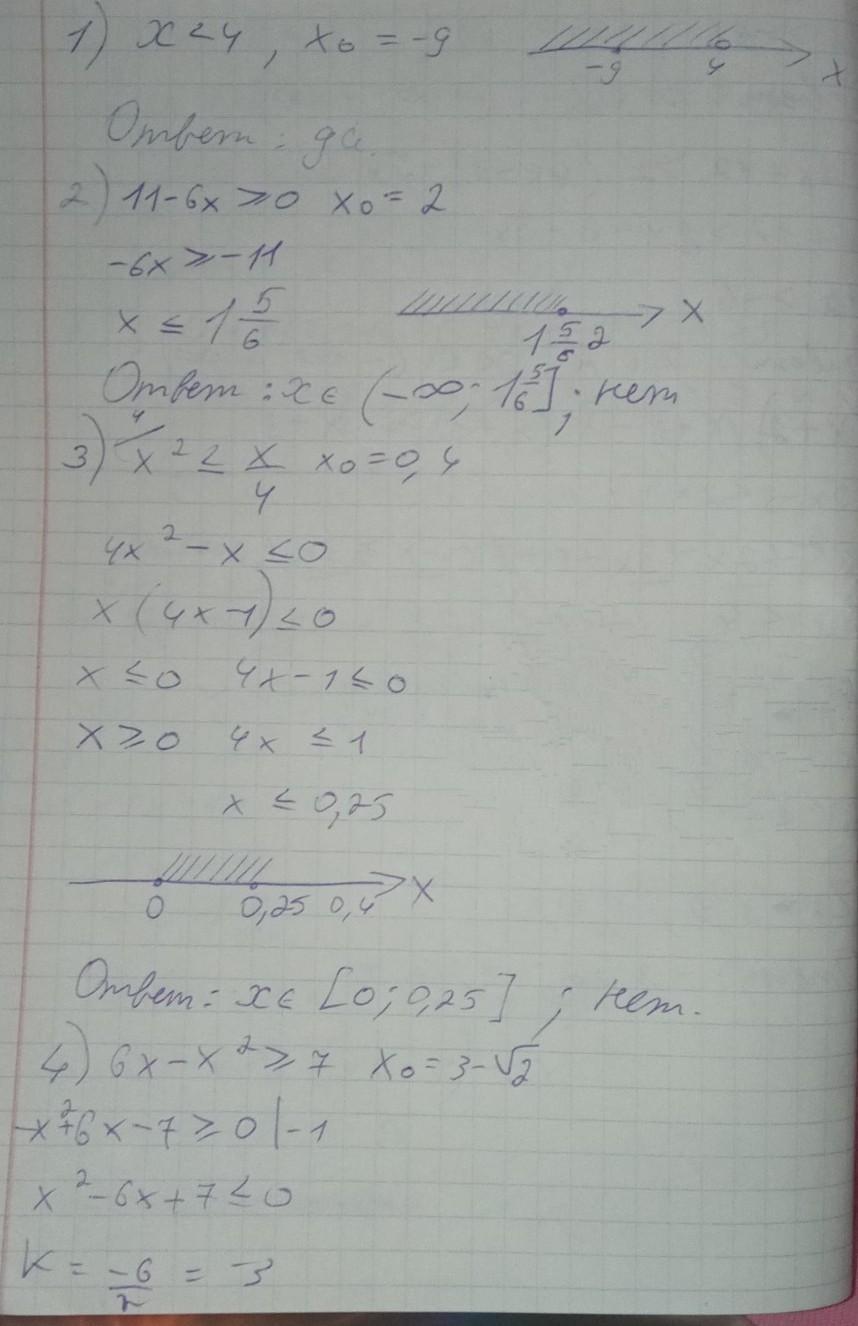 1) x < 4 , x₀ = -9
-9 4 x
Ответ: да.
2) 11-6x ⩾ 0 x₀ = 2
-6x ⩾ -11
x ≤ 1 5/6
1 5/6 2 x
Ответ: x ∈ (-∞; 1 5/6]; нет
3) 4/ x² ≤ x/4 x₀ = 0,4
4x² - x ≤ 0
x(4x-1) ≤ 0
x ≤ 0 4x-1 ≤ 0
x ⩾ 0 4x ≤ 1
x ≤ 0,25
0 0,25 0,4 x
Ответ: x ∈ [0; 0,25] ; нет.
4) 6x - x² ⩾ 7 x₀ = 3-√2
-x²+6x-7 ⩾ 0 |-1
x²-6x+7 ≤ 0
K = -6/2 = -3